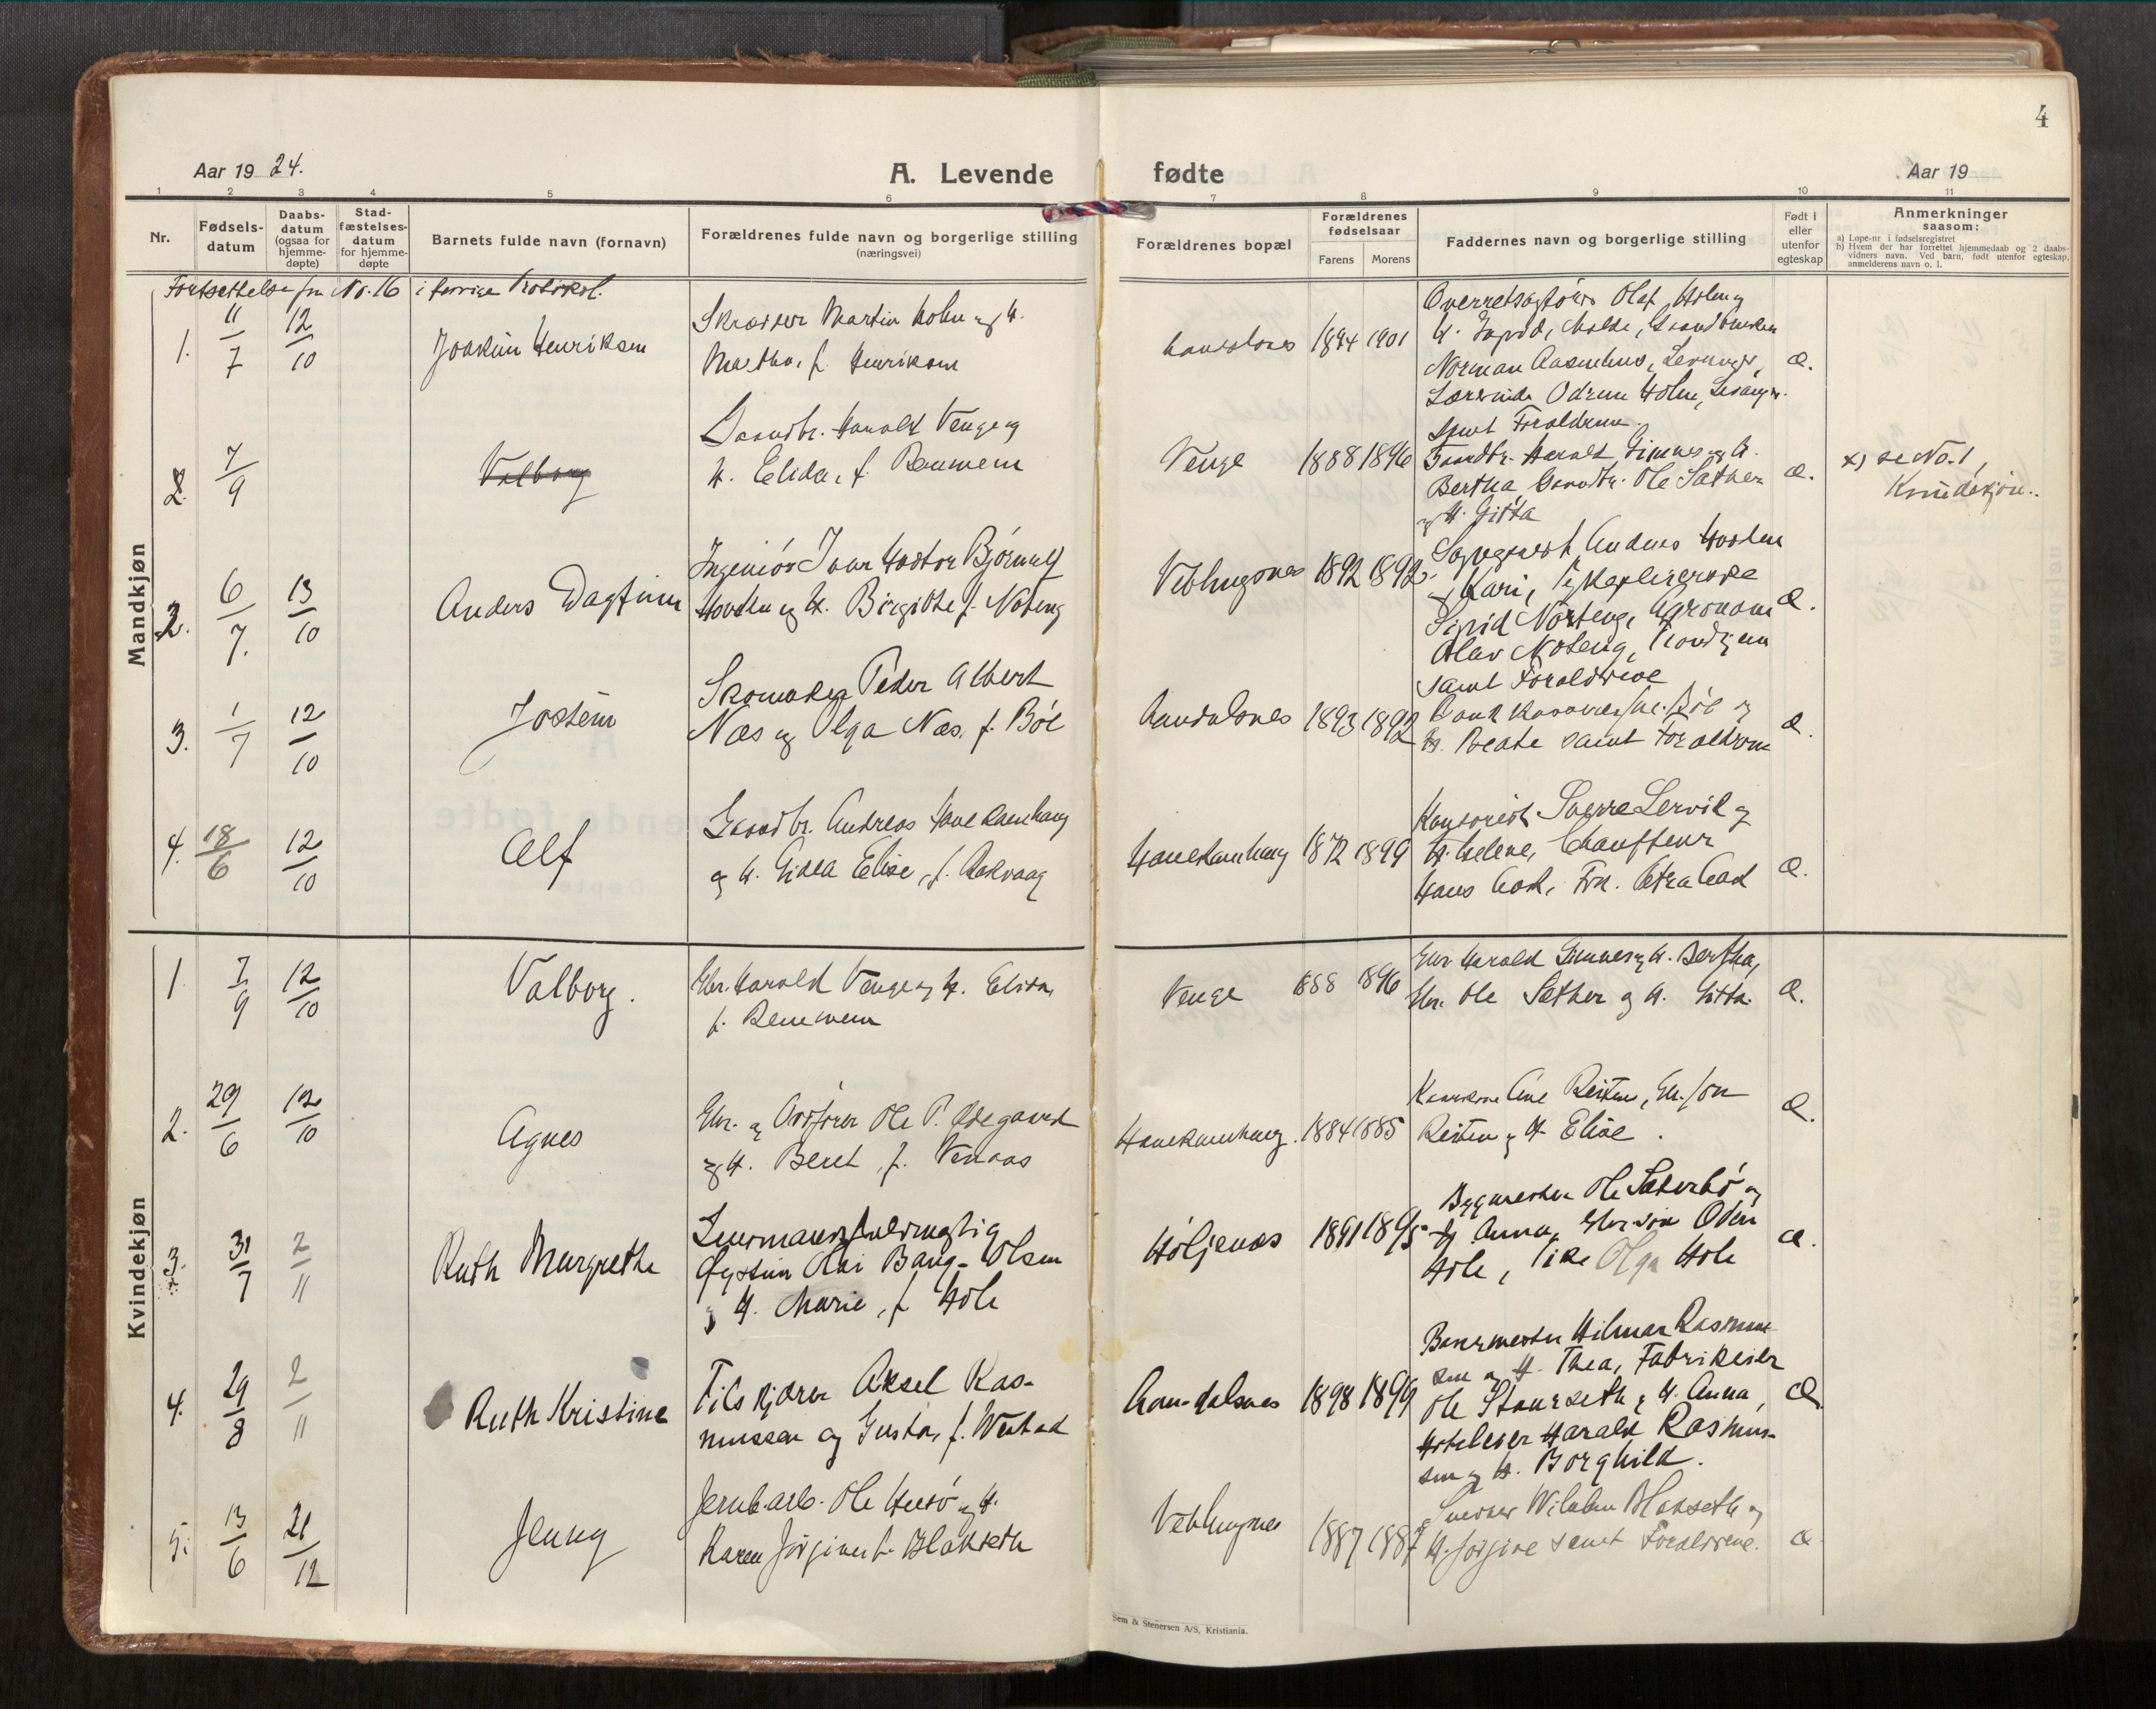 4
Aar 19 24.
A. Levende
fødte
Aar 19
1 2 3 4 5 6 7 8 9 10 11
Nr.
Fødsels-
datum
Daabs-
datum
(ogsaa for
hjemme-
døpte)
Stad-
fæstelses-
datum
for hjemme-
døpte
Barnets fulde navn (fornavn)
Forældrenes fulde navn og borgerlige stilling
(næringsvei)
Forældrenes bopæl
Forældrenes
fødselsaar
Farens Morens
Faddernes navn og borgerlige stilling
Født i
eller
utenfor
egteskap
Anmerkninger
saasom:
a) Løpe-nr i fødselsregistret
b) Hvem der har forrettet hjemmedaab og 2 daabs-
vidners navn. Ved barn, født utenfor egteskap,
anmelderens navn o. l.
Mandkjøn
Fortsættelse fra No. 16 i forrige Protokol.
1. 11/7 12/10
Joakim Henriksen
Skrædder Martin Holm og H.
Martha, f. Henriksen
Aandalsnes 1894 1901
Overretssagfører Olaf Holm og
H. Ingrid, Molde, Gaardbruker
Norman Aasenhus, Levanger,
Lærerinde Odrun Holm, Levanger
samt Forældrene.
Æ.
2. 7/9
Valborg
Gaardbr. Harald Venge og
H. Elida, f. Remmem
Venge 1888 1896
Gaardbr. Harald Gimnes og H.
Bertha, Gaardbr. Ole Sæther
og H. Gitta
Æ.
x) se No. 1,
Kvindekjøn.
2. 6/7. 13/10
Anders Dagfinn
Ingeniør Ivar Bjørnulf
Hovden og H. Birgitte f. Noteng
Veblungsnes 1892 1892
Anders Hovden
og Kari,
Sigrid Noteng, Agronom
Olav Noteng, Trondhjem
samt Forældrene
Æ.
3. 1/7 12/10
Jostein
Skomaker Peder Albert
Næs og Olga Næs, f. Bøe
Aandalsnes 1893 1892
Bøe og
H. Beate samt Forældrene
Æ.
4. 18/6 12/10
Alf
Gaardbr. Andreas Hanekamhaug
og H. Gidea Elise, f. Aakvaag
Hanekamhaug 1872 1899
Kontorist Sverre Lervik og
H. Helene, Chauffeur
Hans Aak, Frk. Petra Aak
Æ.
Kvindekjøn
1. 7/9 12/10
Valborg.
Gbr. Harald Venge og H. Elida,
f. Remmem
Venge 1888 1896
Gbr. Harald Gimnes og H. Bertha,
Gbr. Ole Sæther og H. Gitta.
Æ.
2. 29/6 12/10
Agnes
Gbr. og Ordfører Ole P. Ødegaard
og H. Beret, f. Venaas
Hanekamhaug. 1884 1885
Ane Reiten, Gbr. Jon
Reiten og H. Elise.
Æ.
3. 31/7 2/11
Ruth Margrethe
Lensmandsfuldmægtig
Øystein Olai Bang-Olsen
og H. Marie, f. Hole
Høljenes 1891 1895
Bygmester Ole Sæterbø og
H. Anna,
Hole, Pike Olga Hole
Æ.
4. 29/8 2/11
Ruth Kristine
Filskjærer Aksel Ras-
mussen og Gusta, f. Westad
Aandalsnes 1898 1899
Banemester Hilmar Rasmus-
sen og H. Thea, Fabrikeier
Ole Staurseth og H. Anna,
Hoteleier Harald Rasmus-
sen og H. Borghild.
Æ.
5. 13/6 21/12
Jenny
Jernb.arb. Ole Husø og H.
Karen Jørgine f. Blakseth
Veblungsnes 1887 1887
Snedker Wilhelm Blakseth og
H. Jørgine samt Forældrene.
Æ.
Sem & Stenersen A/S, Kristiania.